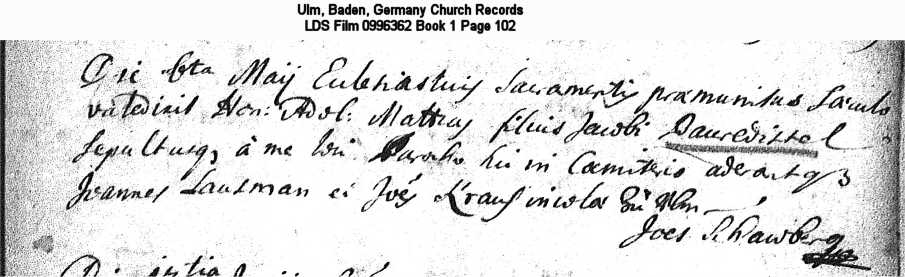 Ulm, Baden, Germany Church Records
LDS Film 0996362 Book 1 Page 102
Die 6ta Maij Eclesiasticis Sacramentis præmunitus Sæculo
valedixit Hon: Adol: Mattias filius Jacobi
Sepultusq à me loci Parocho hic in Cæmiterio aderantq3
Joannes Lausman et Joes Kraus incolæ
Joes